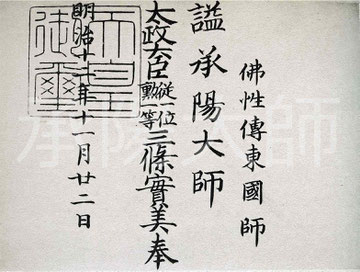 佛性傳東國師
諡承陽大師
太政大臣從一位勳一等三條實美奉
明治十二年十一月廿二日
天皇御璽
承陽大師